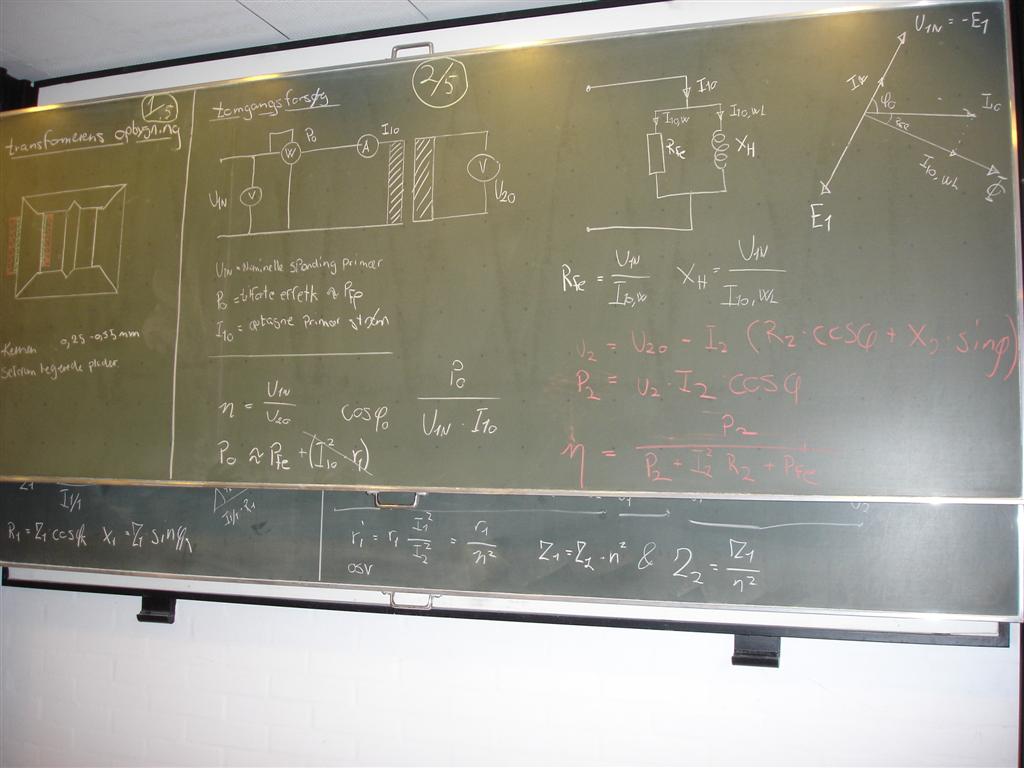 1/5
transformerens opbygning
Kernen 0,25-0,35mm
tomgangsforsøg
2/5
P₀
I10
W
A
V
V
U1N
U20
U1N = Nominelle spænding primær
P₀ = tilførte effekt ≈ PFe
I10 = optagne primær strøm
n = U1N / U20
cosφ₀ P₀ / U1N · I10
P₀ ≈ PFe + (I10² · r1)
I10
I10,W
I10,WL
RFe
XH
RFe = U1N / I10,W XH = U1N / I10,WL
U1N = -E1
φ₀
I10
I10,WL
Φ
E1
U2 = U20 - I2 (R2 · cosφ + X2 · sinφ)
P2 = U2 · I2 cosφ
η = P2 / P2 + I2² R2 + PFe
I1/1
R1 = Z1 cosφk X1 = Z1 sinφk
I1/1 · R1
r1' = r1 I1² / I2² = r1 / n²
osv
Z1 = Z2 · n² & Z2 = Z1 / n²